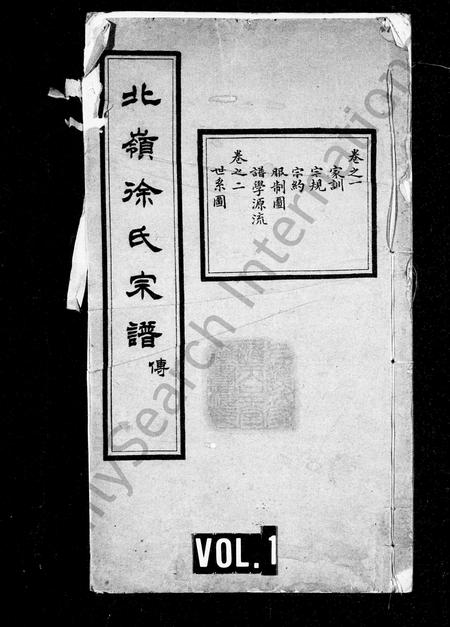 北嶺徐氏宗譜
傳
卷之一
家訓
宗規
宗約
服制圖
譜學源流
卷之二
世系圖
VOL. 1
ilySearch Internation